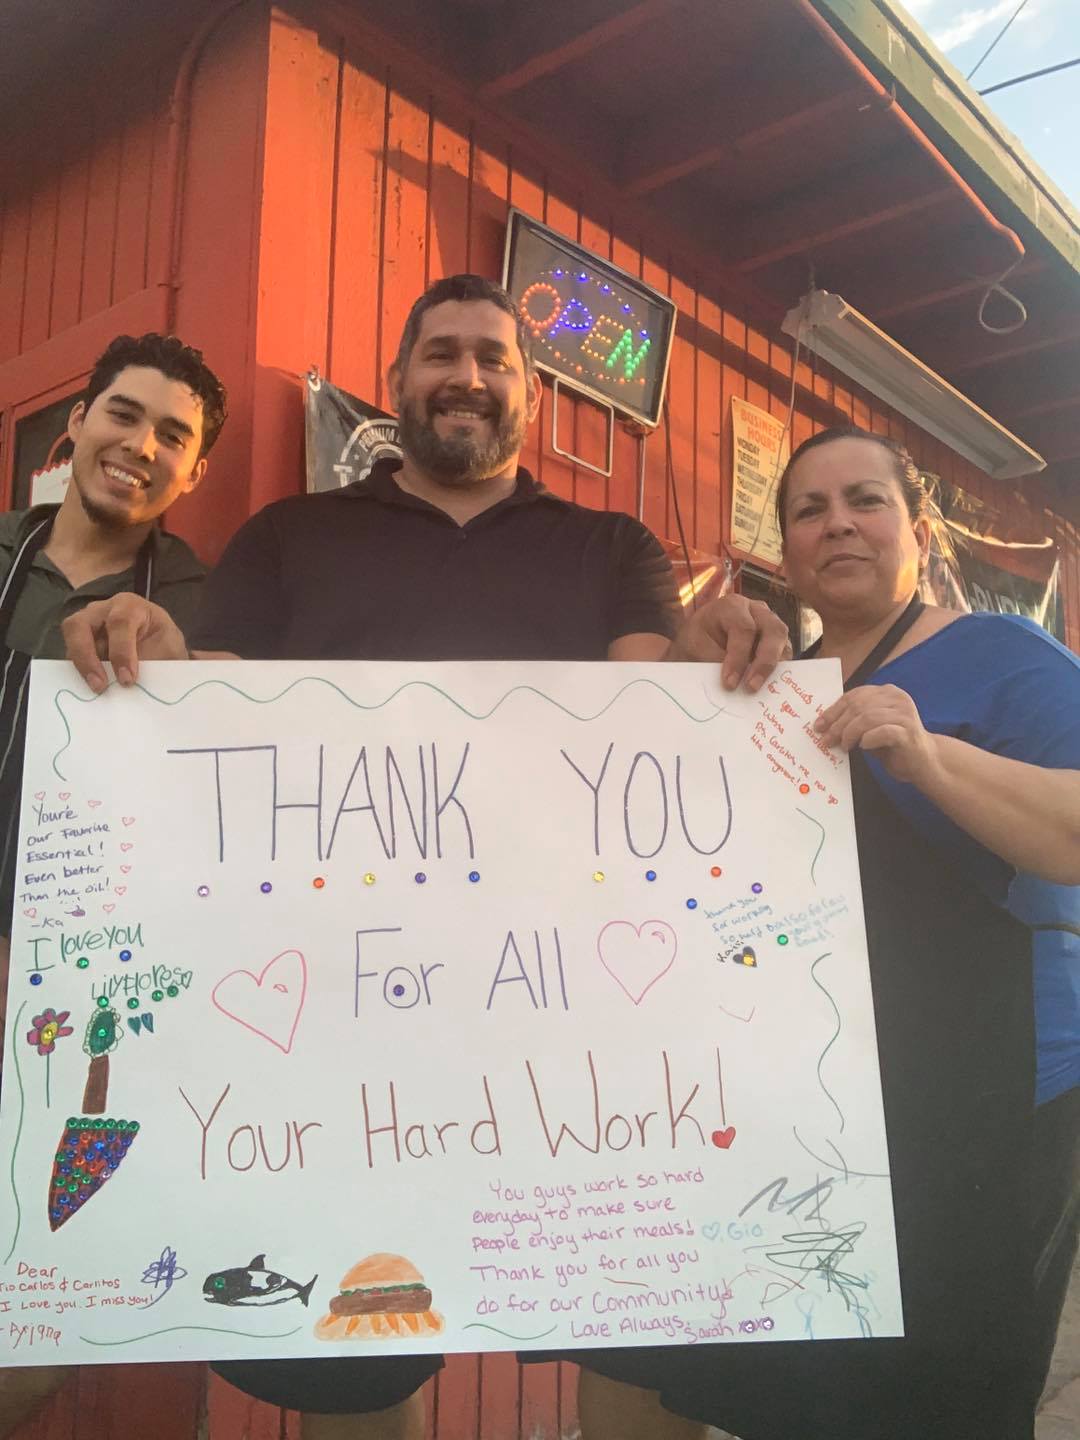 OPEN
PREMIUM
BUSINESS
HOURS
MONDAY
TUESDAY
WEDNESDAY
THURSDAY
FRIDAY
SATURDAY
SUNDAY
THANK YOU
For All
Your Hard Work!
Gracias
for your hard work!
Carlitos, me not go
anymore!
You're
Our Favorite
Essential!
Even better
Than the Oils!
-Ka
I love you
Lily Flores
thank you
for working
so hard
Kaili
Dear
Tio Carlos & Carlitos
I Love you. I miss you!
You guys work so hard
everyday to make sure
people enjoy their meals!
Gio
Thank you for all you
do for our Community!
Love Always,
Sarah xoxo